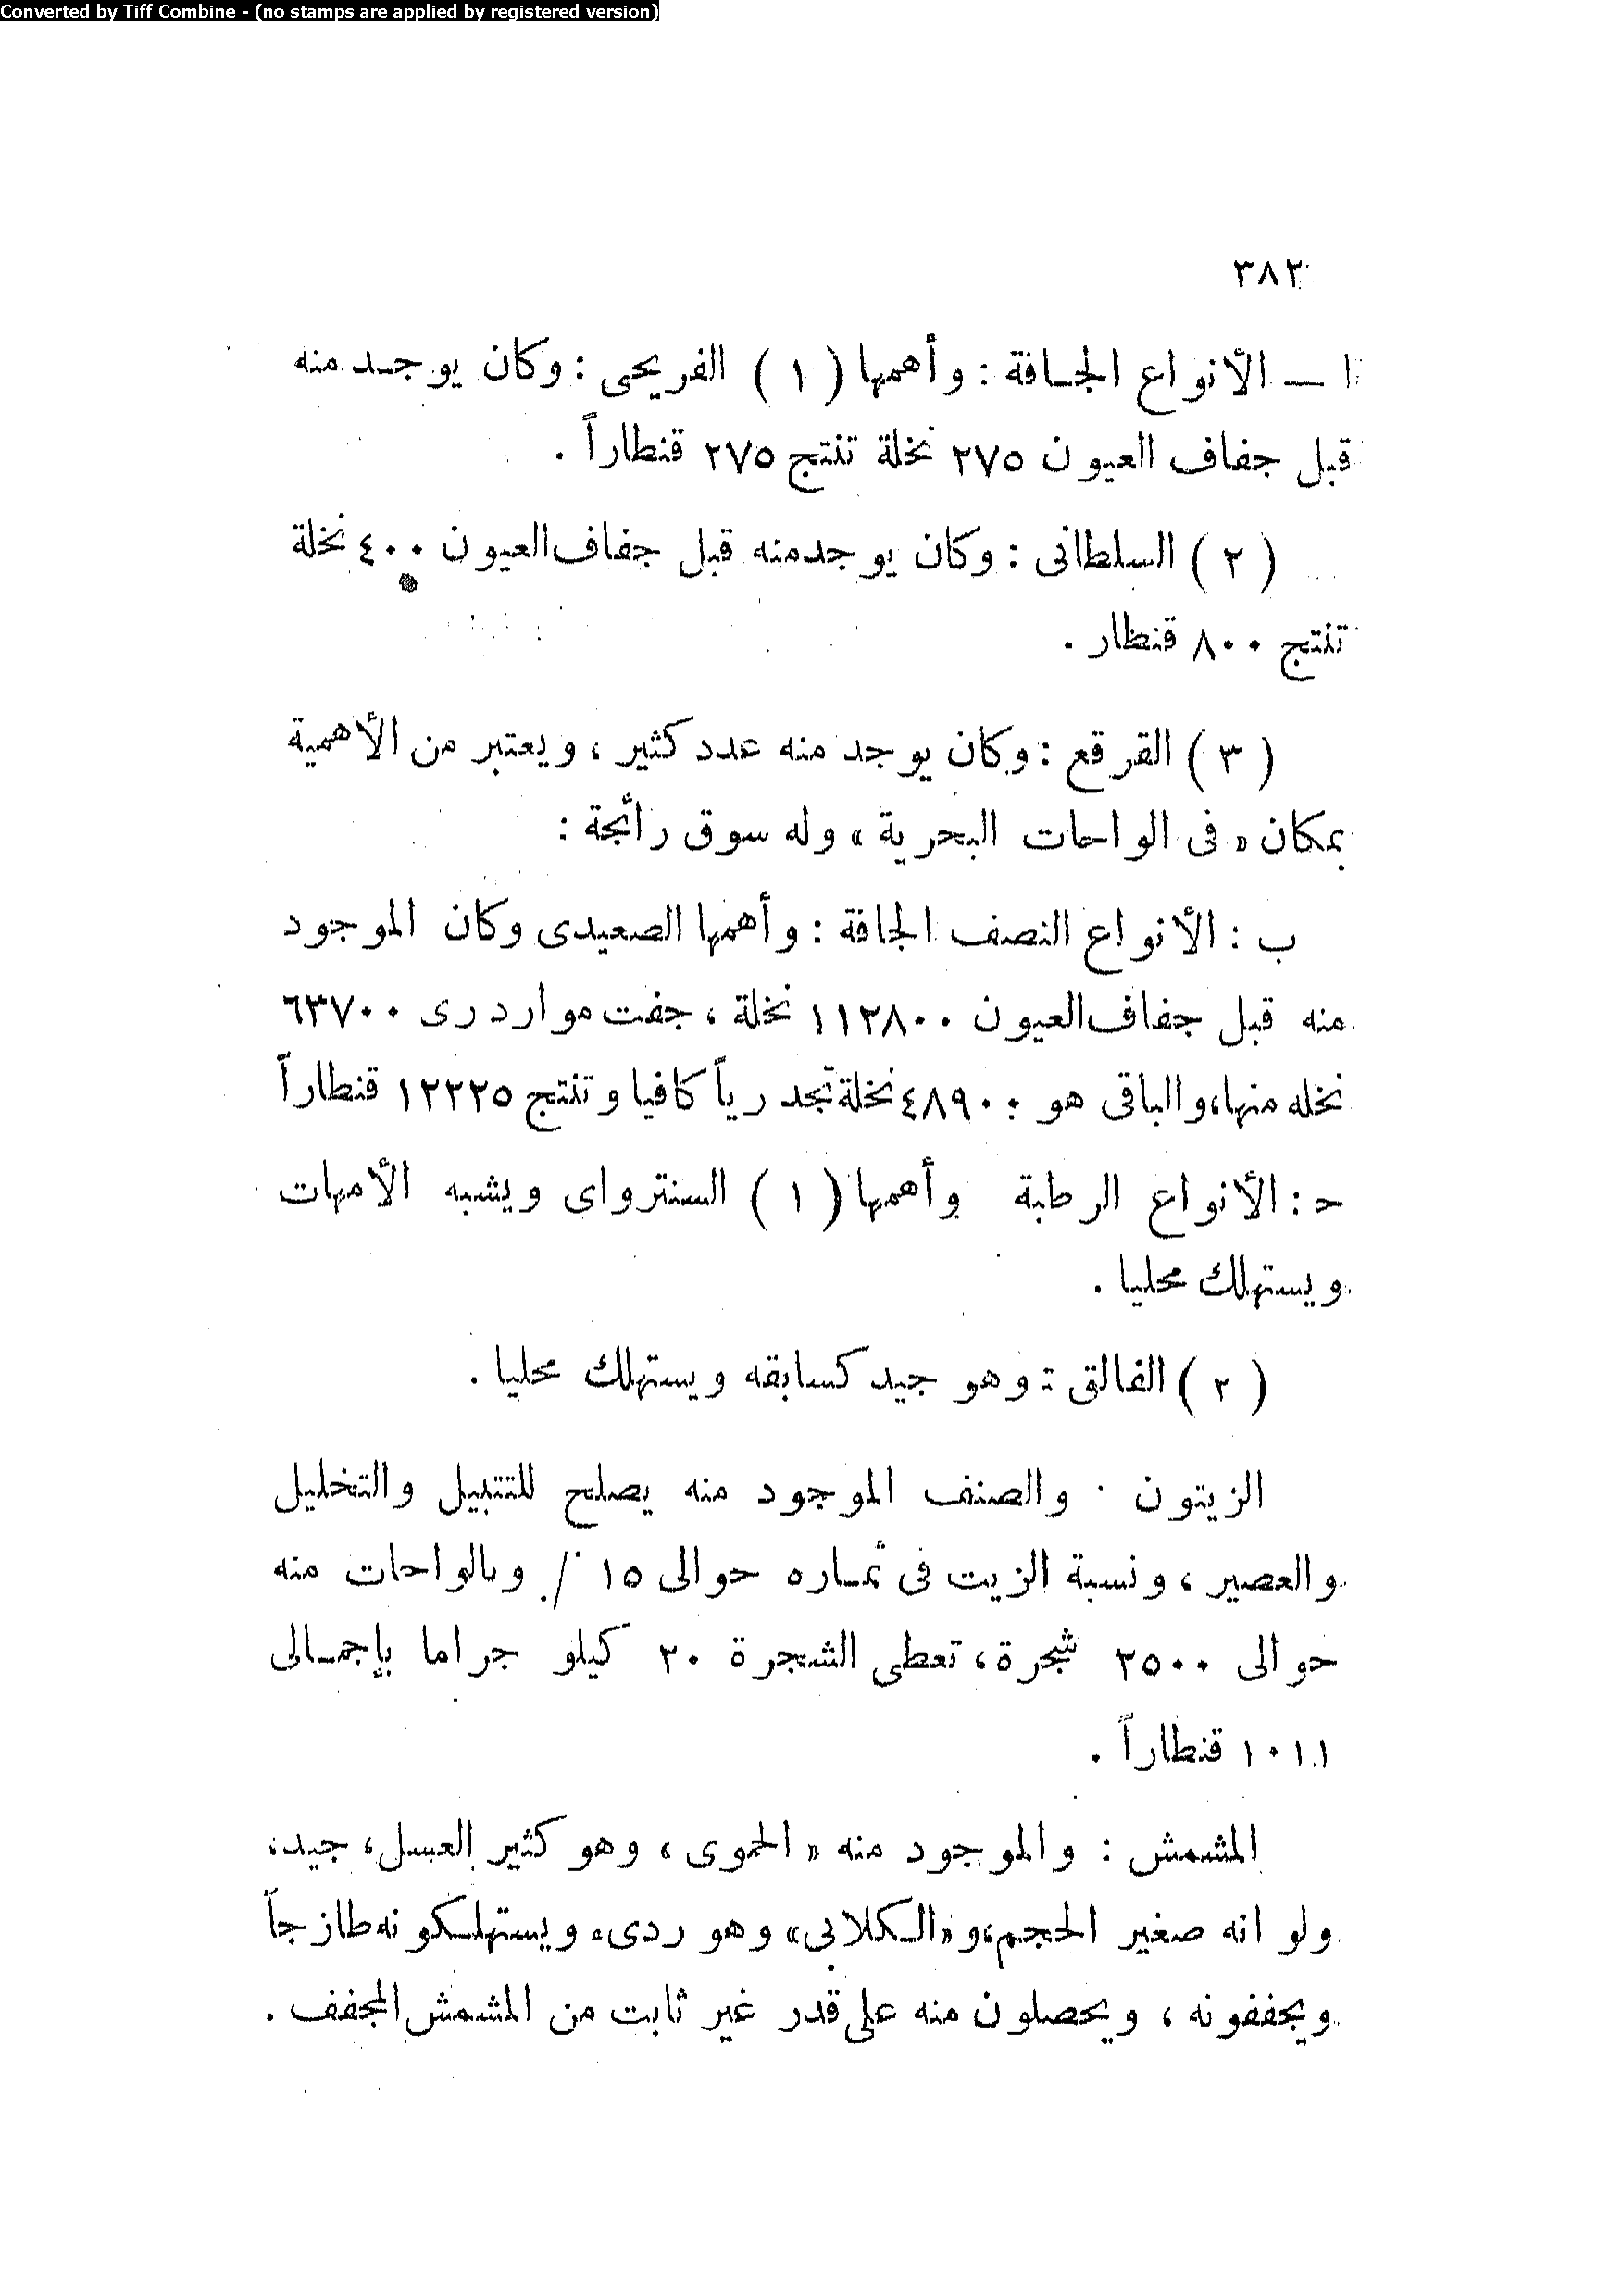 Converted by Tiff Combine - (no stamps are applied by registered version)
٣٨٢
ا — الأنواع الجافة : وأهمها ( ١ ) الفريحى : وكان يوجد منه
قبل جفاف العيون ٢٧٥ نخلة تنتج ٢٧٥ قنطاراً .
( ٢ ) السلطانى : وكان يوجد منه قبل جفاف العيون ٤٠٠ نخلة
تنتج ٨٠٠ قنظار .
( ٣ ) القرقع : وكان يوجد منه عدد كثير ، ويعتبر من الأهمية
بمكان « فى الواحات البحرية » وله سوق رائجة :
ب : الأنواع النصف الجافة : وأهمها الصعيدى وكان الموجود
منه قبل جفاف العيون ١١٢٨٠٠ نخلة ، جفت موارد رى ٦٣٧٠٠
نخله منها، والباقى هو ٤٨٩٠٠ نخلة تجد رياً كافيا وتنتج ١٢٢٢٥ قنطاراً
ح : الأنواع الرطبة وأهمها ( ١ ) السنترواى ويشبه الأمهات
ويستهلك محليا .
( ٢ ) الفالق : وهو جيد كسابقه ويستهلك محليا .
الزيتون . والصنف الموجود منه يصلح للتتبيل والتخليل
والعصير ، ونسبة الزيت فى ثماره حوالى ١٥ ٪ وبالواحات منه
حوالى ٢٥٠٠ شجرة ، تعطى الشجرة ٢٠ كيلو جراما بإجمالى
١٠١١ قنطاراً .
المشمش : والموجود منه « الحموى » وهو كثير العسل ، جيد ،
ولو انه صغير الحجم ، و« الكلابى » وهو ردىء ويستهلكونه طازجاً
ويجففونه ، ويحصلون منه على قدر غير ثابت من المشمش المجفف .